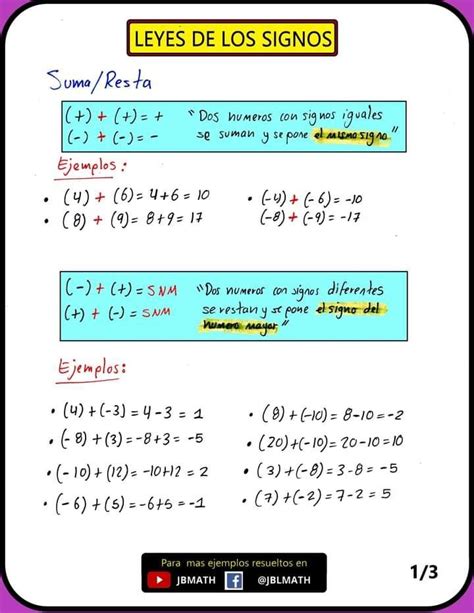 LEYES DE LOS SIGNOS
Suma/Resta
(+) + (+) = + "Dos numeros con signos iguales
(-) + (-) = - se suman y se pone el mismo signo"
Ejemplos:
• (4) + (6) = 4+6 = 10 • (-4) + (-6) = -10
• (8) + (9) = 8+9 = 17 (-8) + (-9) = -17
(-) + (+) = SNM "Dos numeros con signos diferentes
(+) + (-) = SNM se restan y se pone el signo del
numero mayor"
Ejemplos:
• (4) + (-3) = 4-3 = 1 • (8) + (-10) = 8-10 = -2
• (-8) + (3) = -8+3 = -5 • (20) + (-10) = 20-10 = 10
• (-10) + (12) = -10+12 = 2 • (3) + (-8) = 3-8 = -5
• (-6) + (5) = -6+5 = -1 • (7) + (-2) = 7-2 = 5
Para mas ejemplos resueltos en
JBMATH f @JBLMATH
1/3